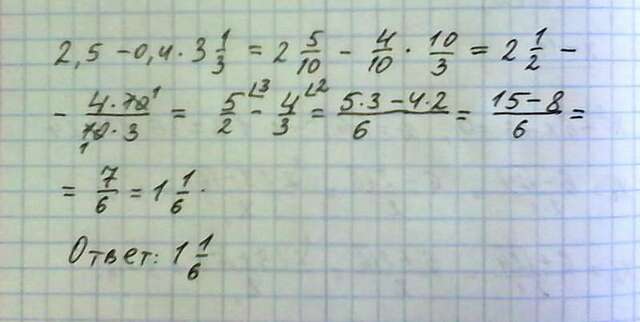 2,5 - 0,4 · 3 1/3 = 2 5/10 - 4/10 · 10/3 = 2 1/2 -
- 4·10/10·3 = 5/2 - 4/3 = 5·3-4·2/6 = 15-8/6 =
= 7/6 = 1 1/6.
Ответ: 1 1/6